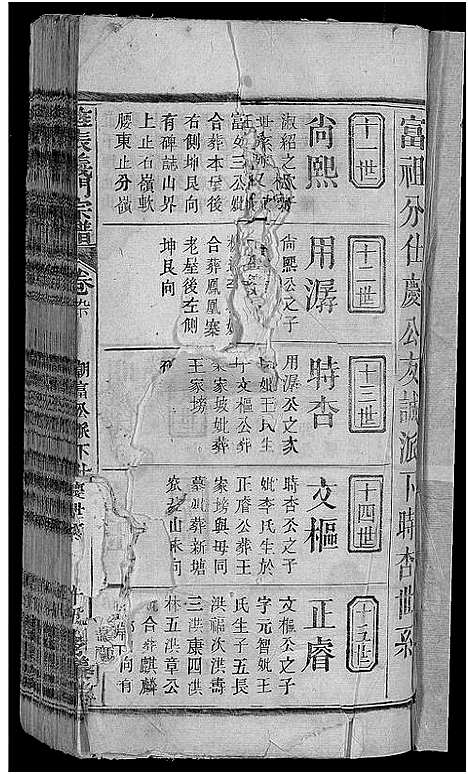 富祖分仕慶公友誠派下時杏世系
十一世
尙熙
淑紹之次
世系
富如三公妣
合葬本屋後
右側坤艮向
有碑誌山界
上止石嶺軟
腰東止分嶺
十二世
用潺
尙熙公之子
合葬鳳凰寨
老屋後左側
坤艮向
十三世
時杏
用潺公之次
妣王氏生
子文樞公葬
家坡妣葬
王家塝
十四世
文樞
時杏公之子
妣李氏生於
正睿公葬王
家塝與母同
墓妣葬新塘
山未向
十五世
正睿
文樞公之子
字元智妣王
氏生子五長
洪福次洪壽
三洪東四洪
林五洪章公
合葬麒麟
張義門宗譜
卷
派下仕慶世系